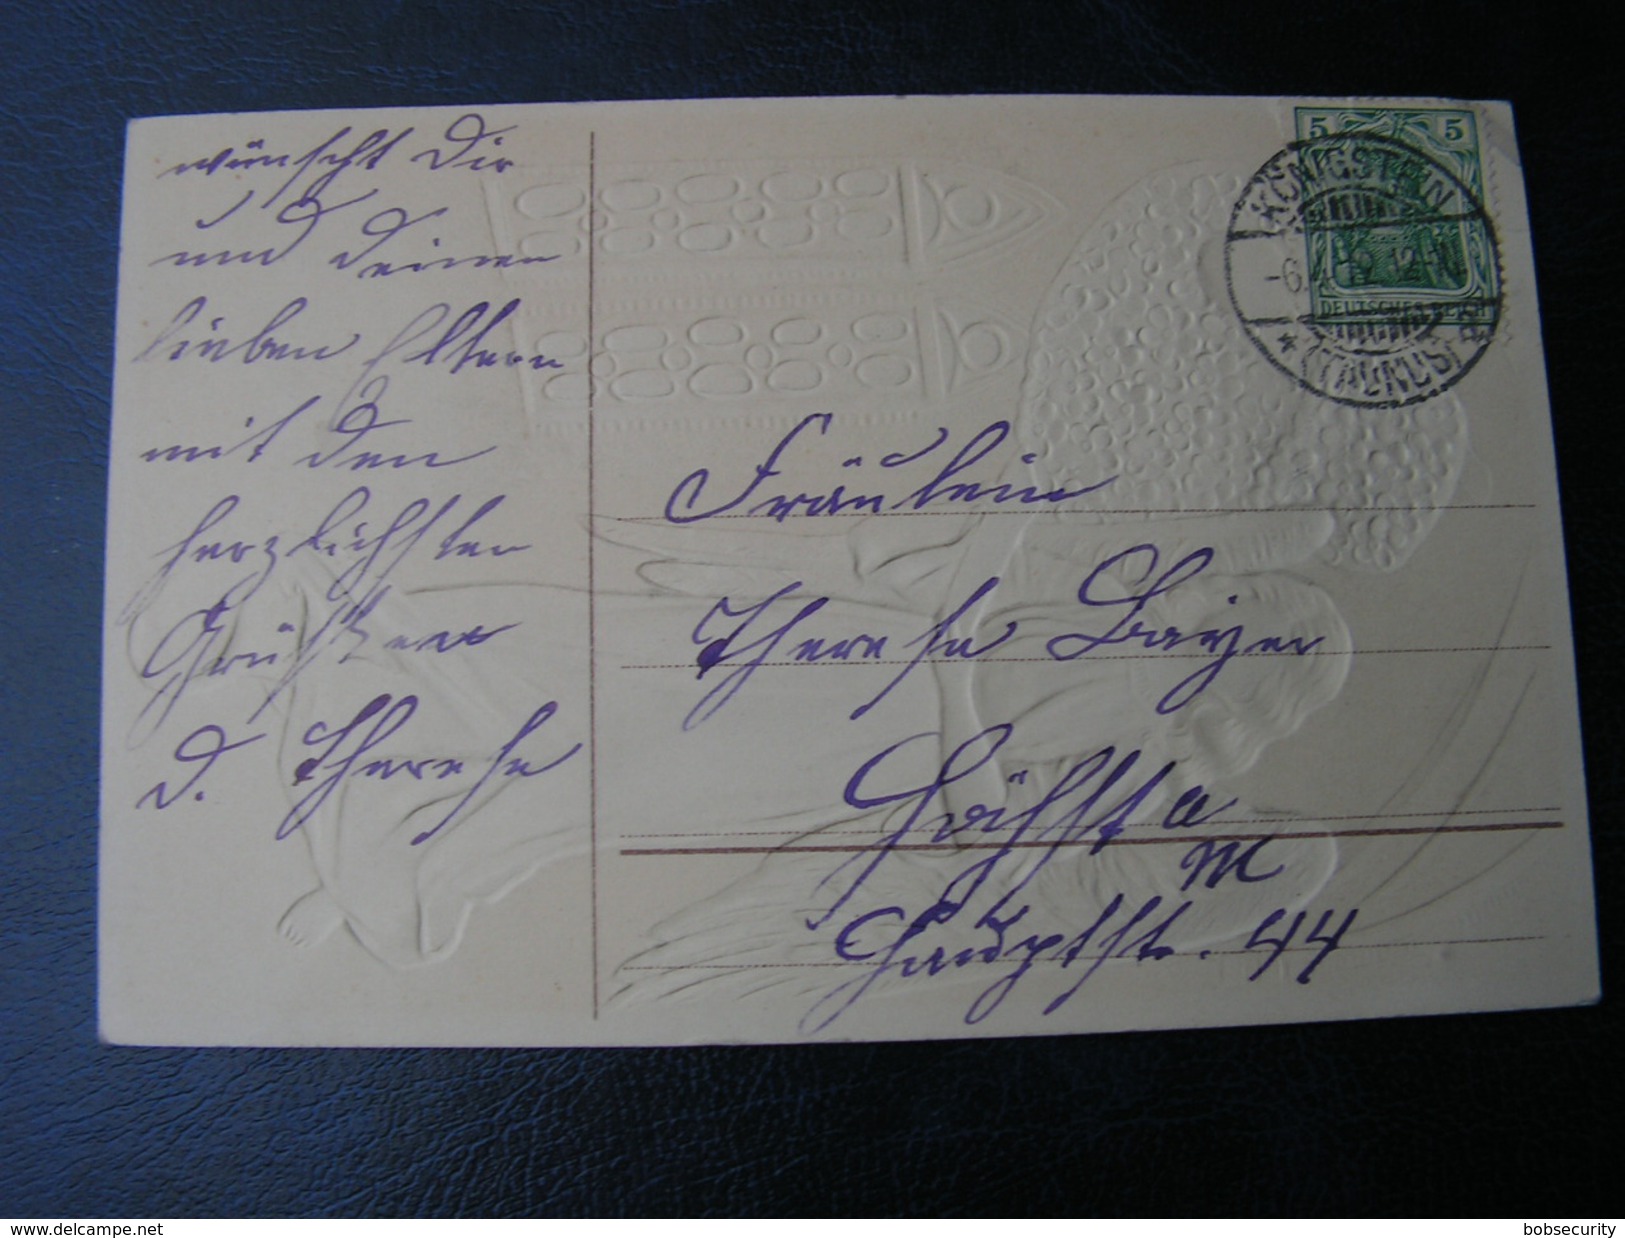 wünscht Dir
und Deinen
lieben Eltern
mit den
herzlichsten
Grüßen
d. Therese
5 5
DEUTSCHES REICH
KÖNIGSTEIN
(TAUNUS)
Fräulein
Therese Bayer
Höchst a
M
Hauptstr. 44
delcampe.net
bobsecurity